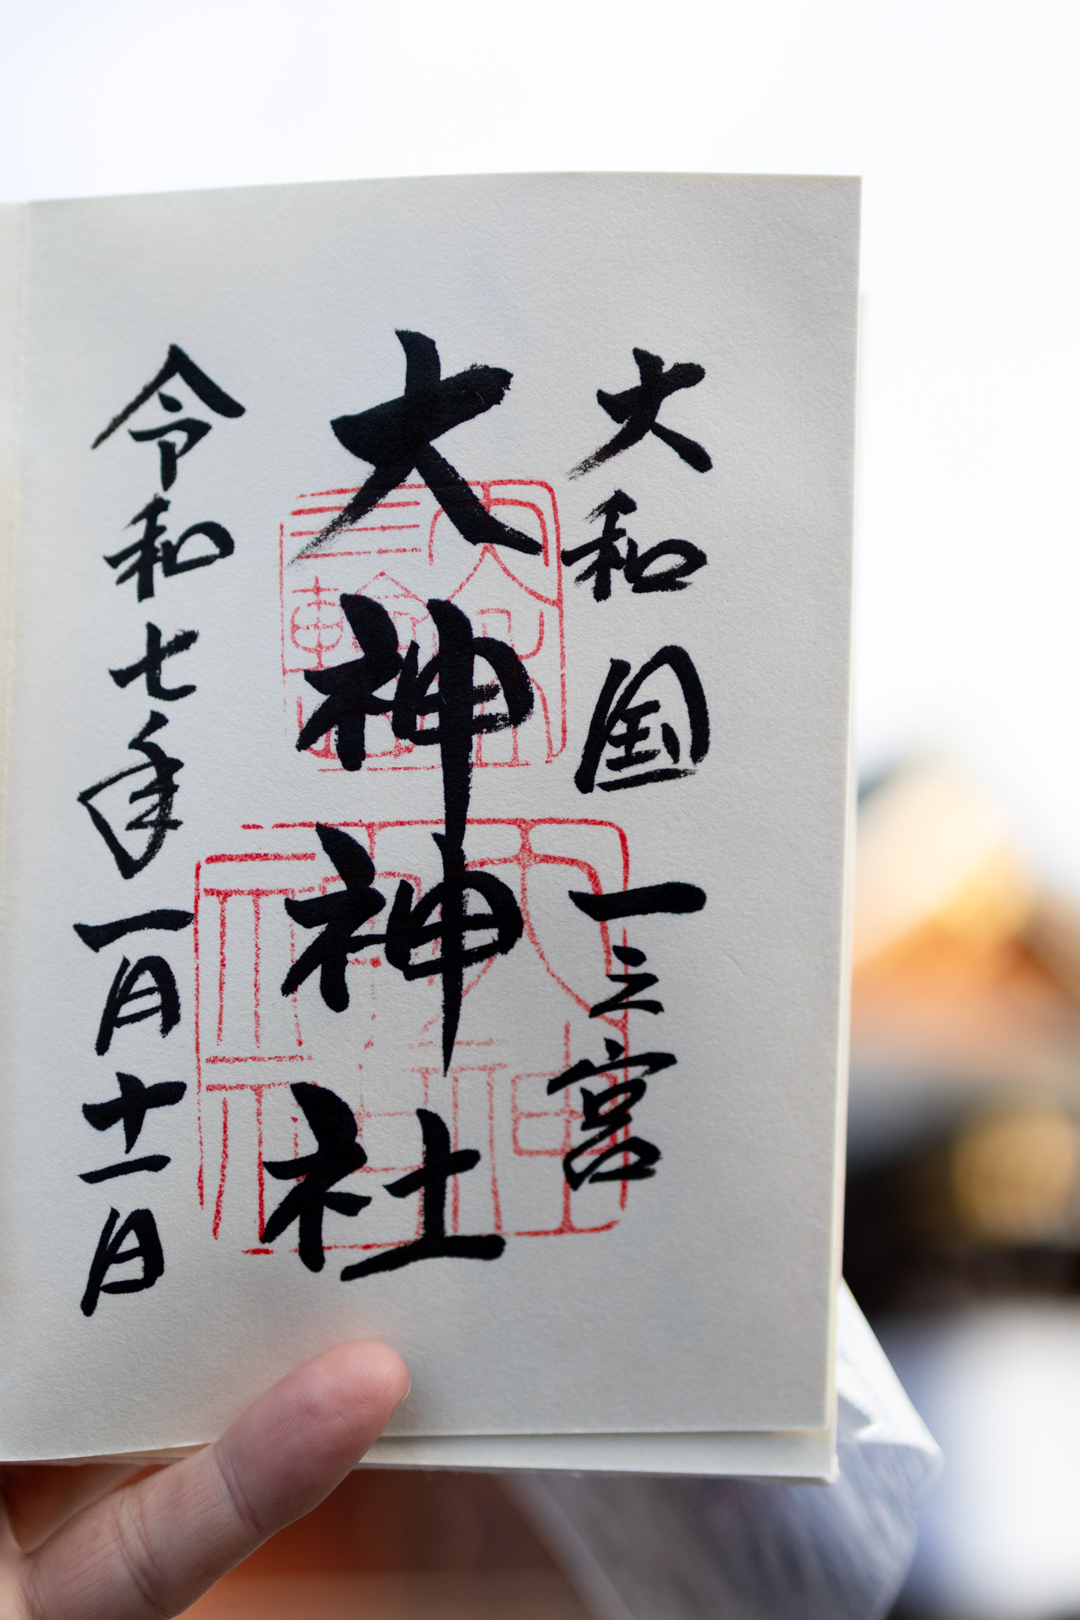 大和国一之宮
大神神社
令和七年一月十一日